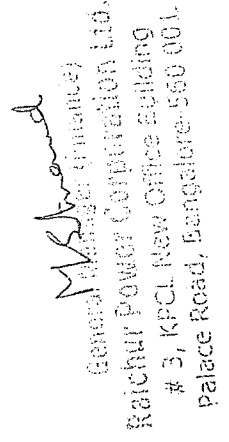 General Manager (Finance)
Raichur Power Corporation Ltd.
# 3, KPCL New Office Building
Palace Road, Bangalore-560 001.